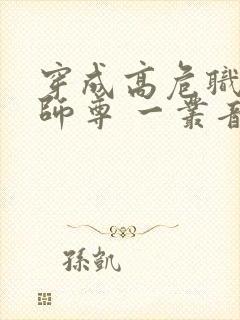 穿成高危職
師尊 一叢音
孫凱